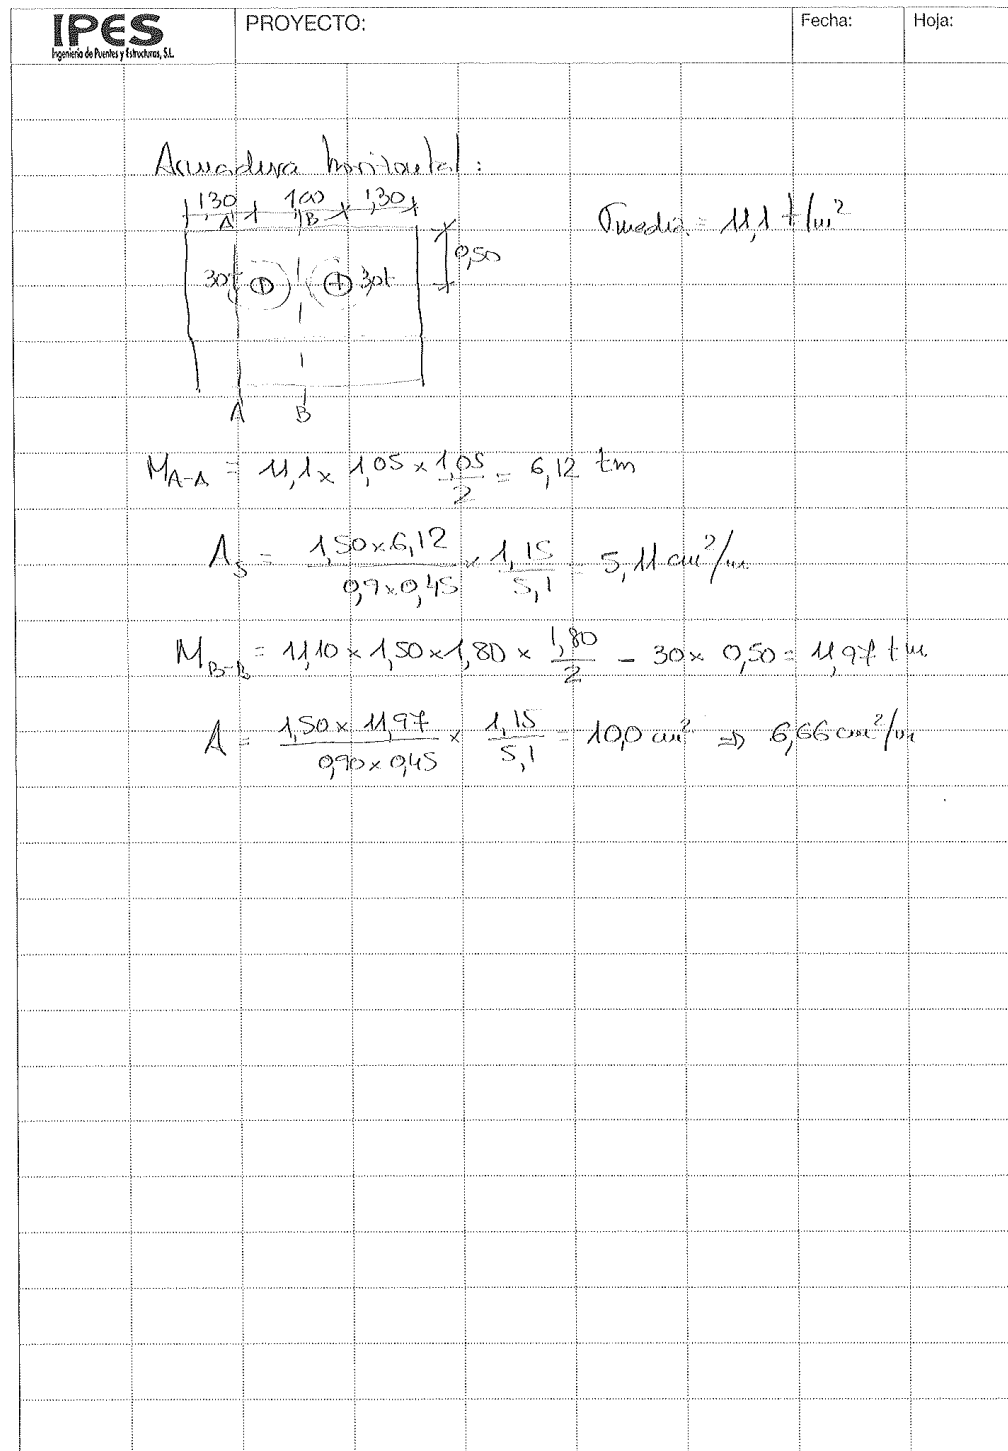 IPES
Ingeniería de Puentes y Estructuras, S.L.
PROYECTO:
Fecha:
Hoja:
Armadura horizontal:
1,30 1,00 1,30
A B
σmedia = 11,1 t/m²
0,50
30t 30t
A B
M_A-A = 11,1 x 1,05 x 1,05/2 = 6,12 tm
A_s = (1,50x6,12)/(0,9x0,45) x 1,15/5,1 = 5,11 cm²/m
M_B-B = 11,10 x 1,50 x 1,80 x 1,80/2 - 30x 0,50 = 11,97 tm
A = (1,50x 11,97)/(0,90x0,45) x 1,15/5,1 = 10,0 cm² ⇒ 6,66 cm²/m